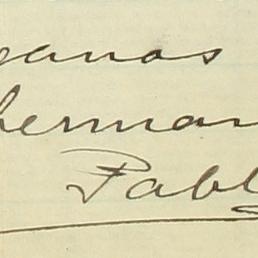 ganas
herman
Pabl